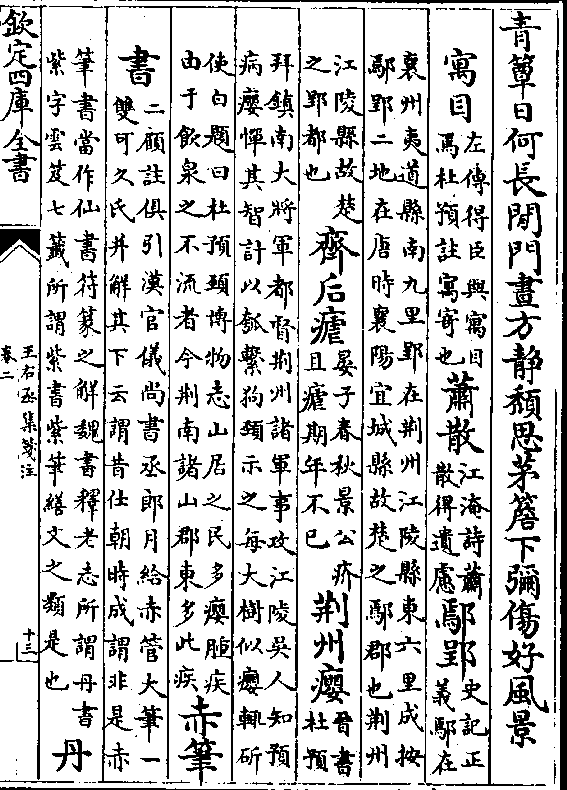 青簟日何長閒門晝方静頹思茅簷下彌傷好風景
寓目
左傳得臣與寓目
焉杜預註寓寄也
蕭散
江淹詩蕭
散得遺慮
鄢郢
史記正
義鄢在
襄州夷道縣南九里郢在荆州江陵縣東六里成按
鄢郢二地在唐時襄陽宜城縣故楚之鄢郡也荆州
江陵縣故楚
之郢都也
齊后瘧
晏子春秋景公疥
且瘧期年不已
荆州癭
晉書
杜預
拜鎮南大將軍都督荆州諸軍事攻江陵吳人知預
病癭憚其智計以瓠繫狗頸示之每大樹似癭輒斫
使白題曰杜預頸博物志山居之民多癭腫疾
由于飲泉之不流者今荆南諸山郡東多此疾
赤筆
書
二顧註俱引漢官儀尚書丞郎月給赤管大筆一
雙可久氏并解其下云謂昔仕朝時成謂非是赤
筆書當作仙書符篆之解魏書釋老志所謂丹書
紫字雲笈七籤所謂紫書紫筆繕文之類是也
丹
欽定四庫全書
王右丞集箋注
卷二
十三